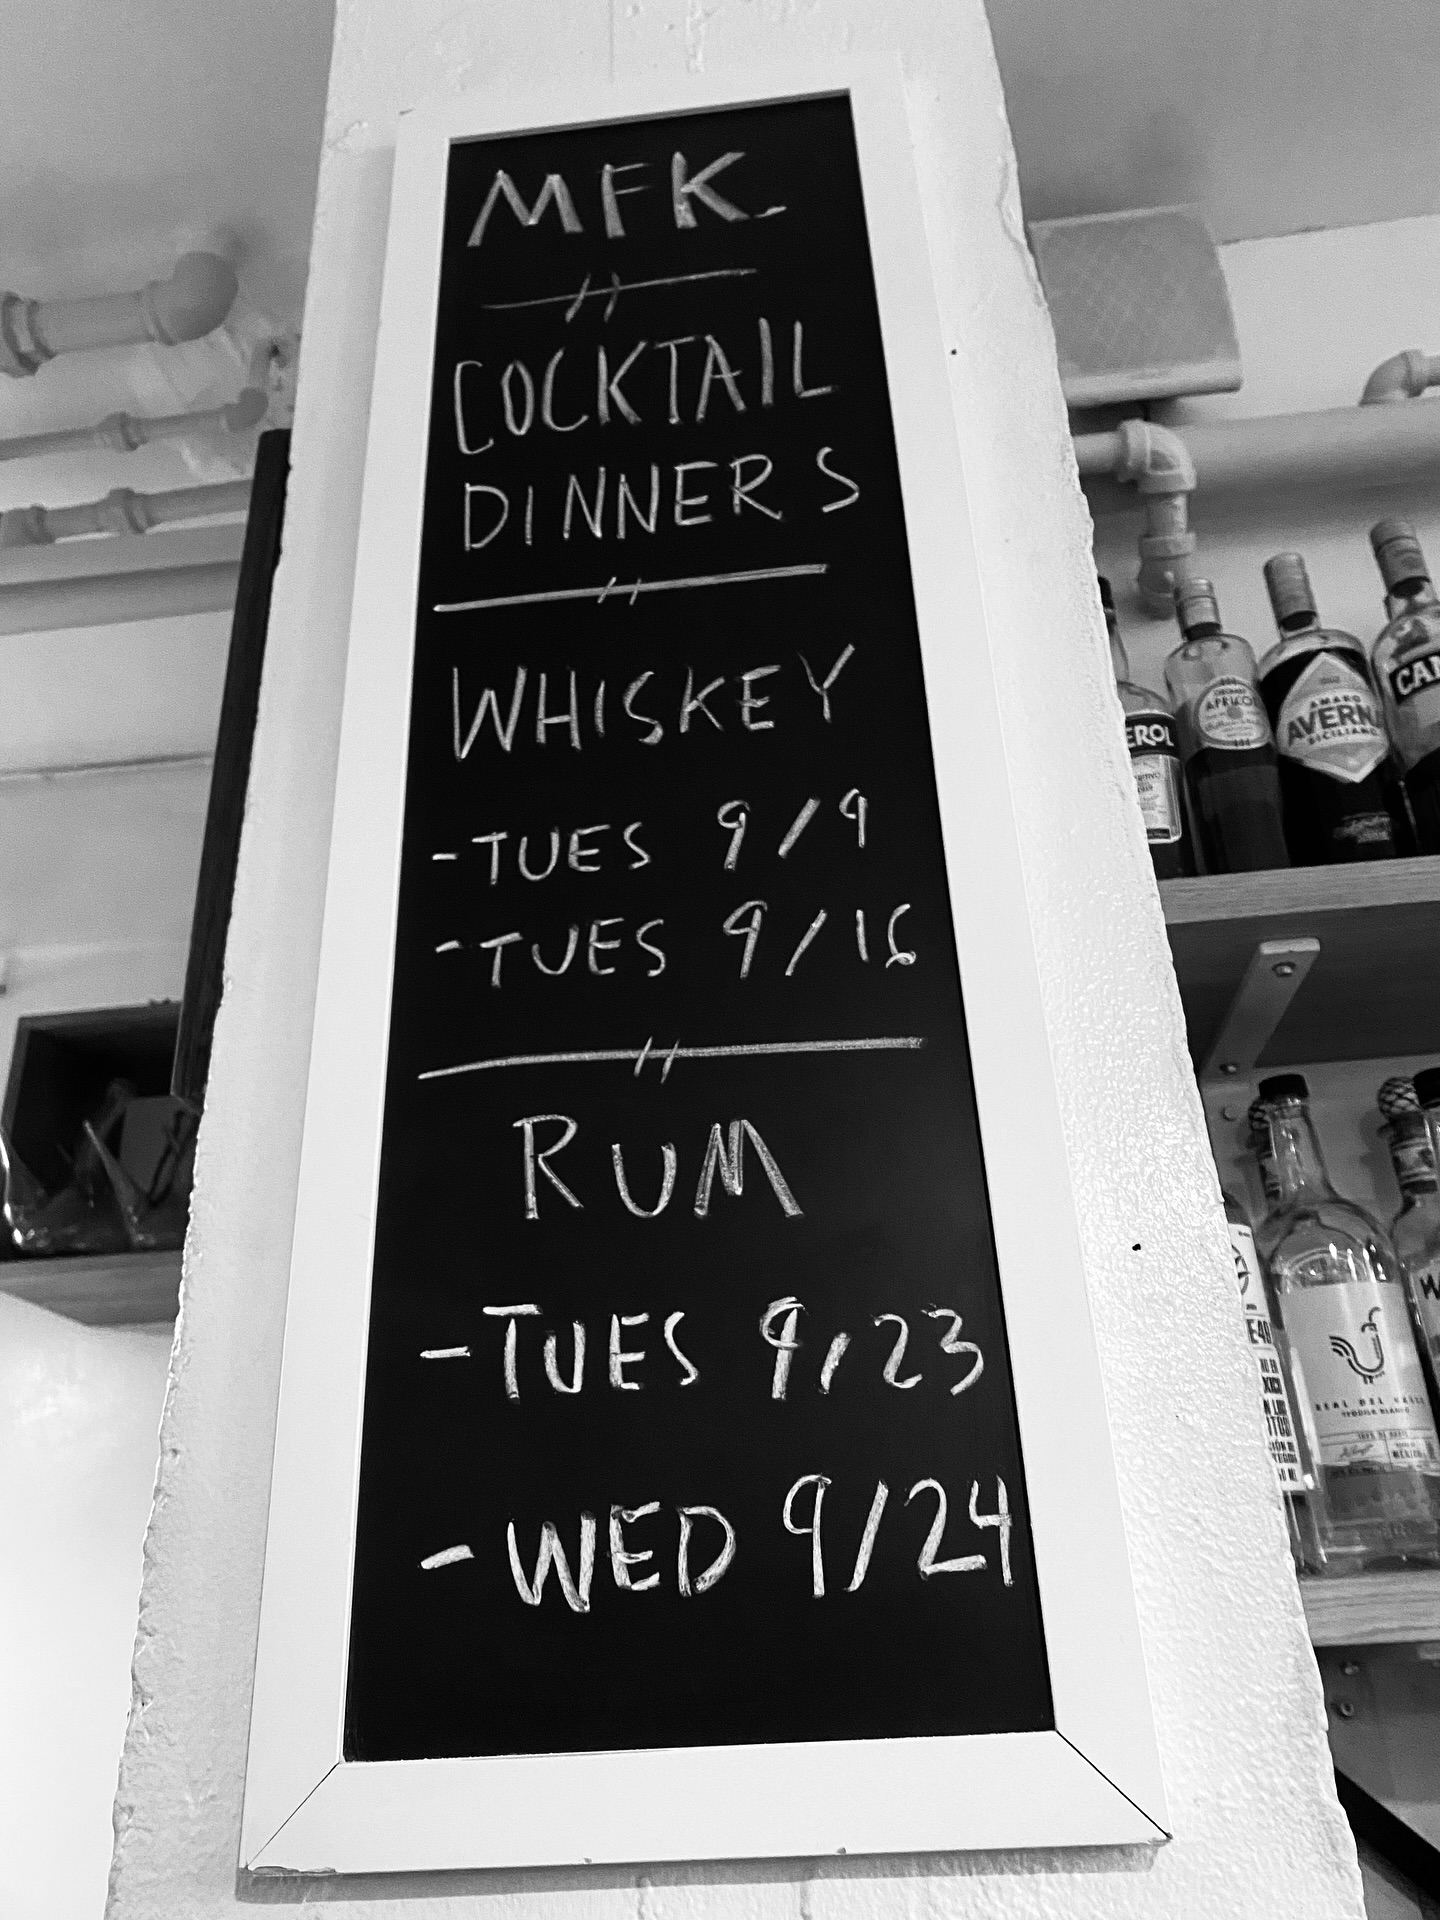 MFK.
COCKTAIL
DINNERS
WHISKEY
-TUES 9/9
-TUES 9/16
RUM
-TUES 9/23
-WED 9/24
EROL
APRICOT
AMARO
AVERNA
SICILIANO
CAM
REAL DEL VALLE
TEQUILA BLANCO
MÉXICO